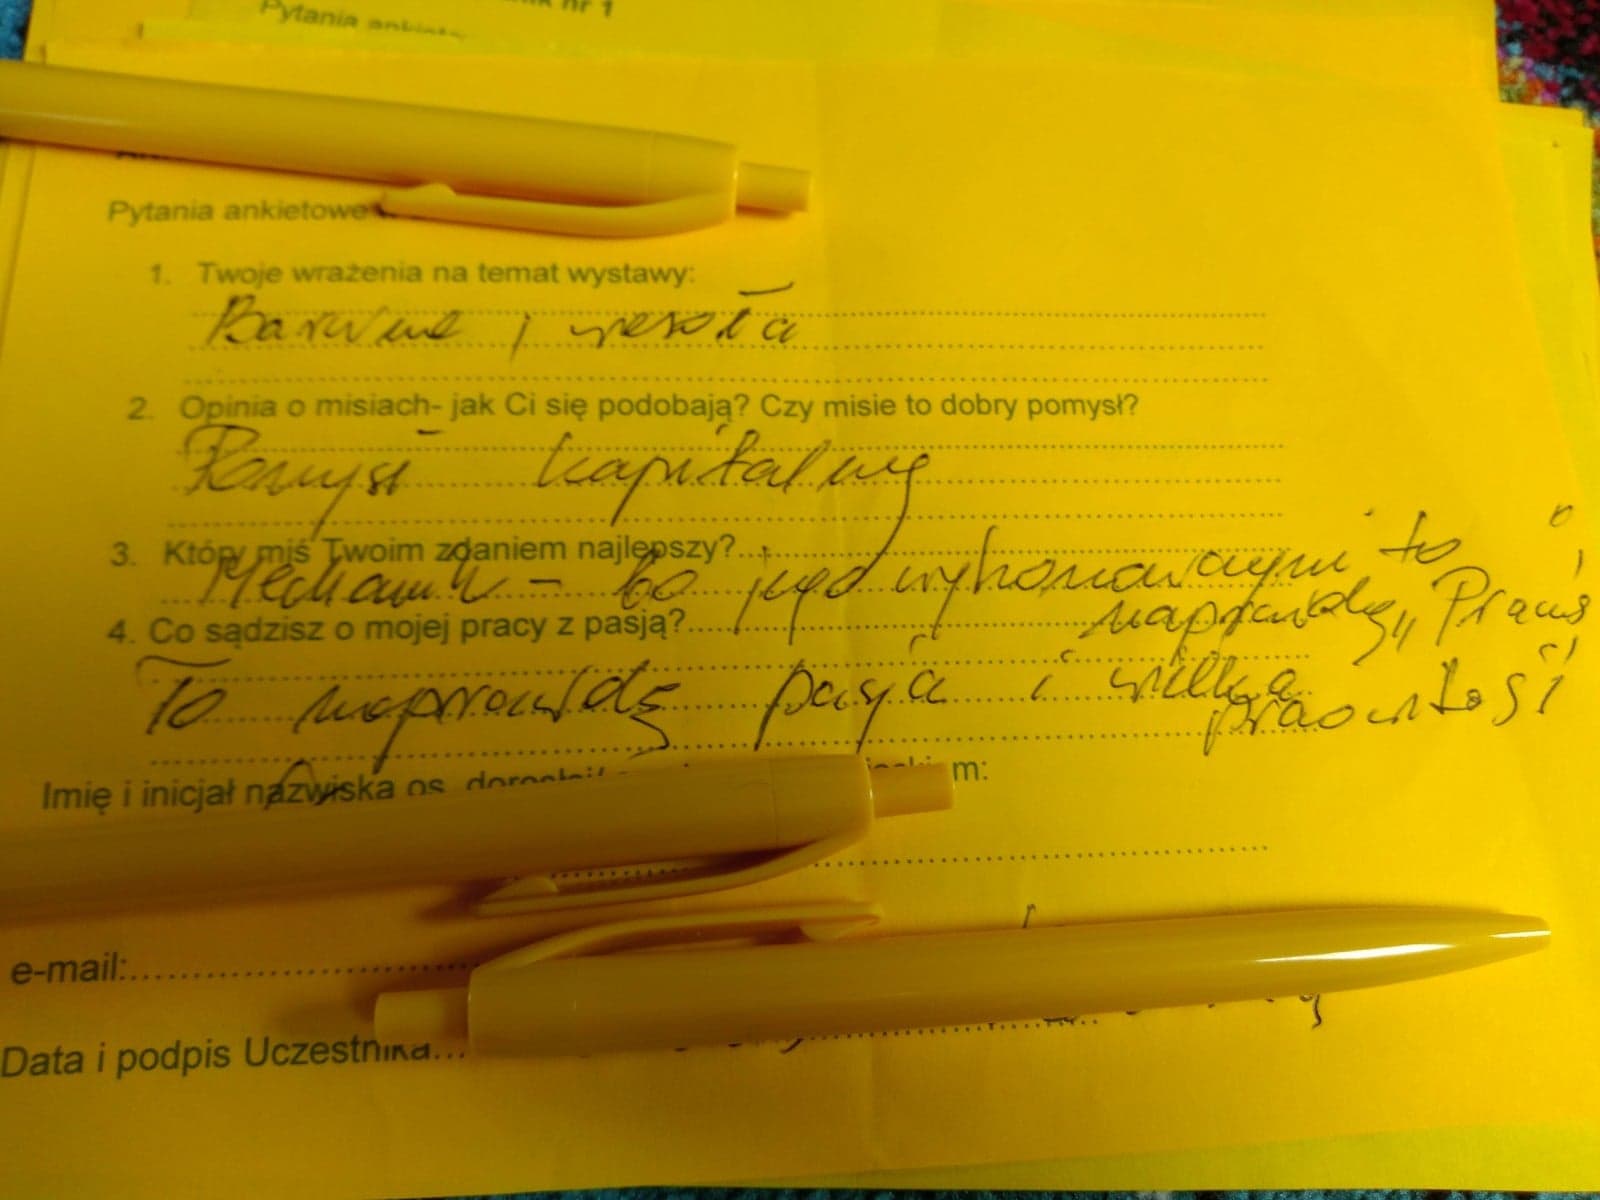 nr 1
Pytania ankietow
Pytania ankietowe
1. Twoje wrażenia na temat wystawy:
Barwne i wesoła
2. Opinia o misiach- jak Ci się podobają? Czy misie to dobry pomysł?
Pomysł kapitalny
3. Który miś Twoim zdaniem najlepszy?
Mechanik - bo jego wykonowaym to
naprawdę
4. Co sądzisz o mojej pracy z pasją?
To naprawdę pasja i wielka
pracowitość
Imię i inicjał nazwiska os. m:
e-mail:
Data i podpis Uczestnika